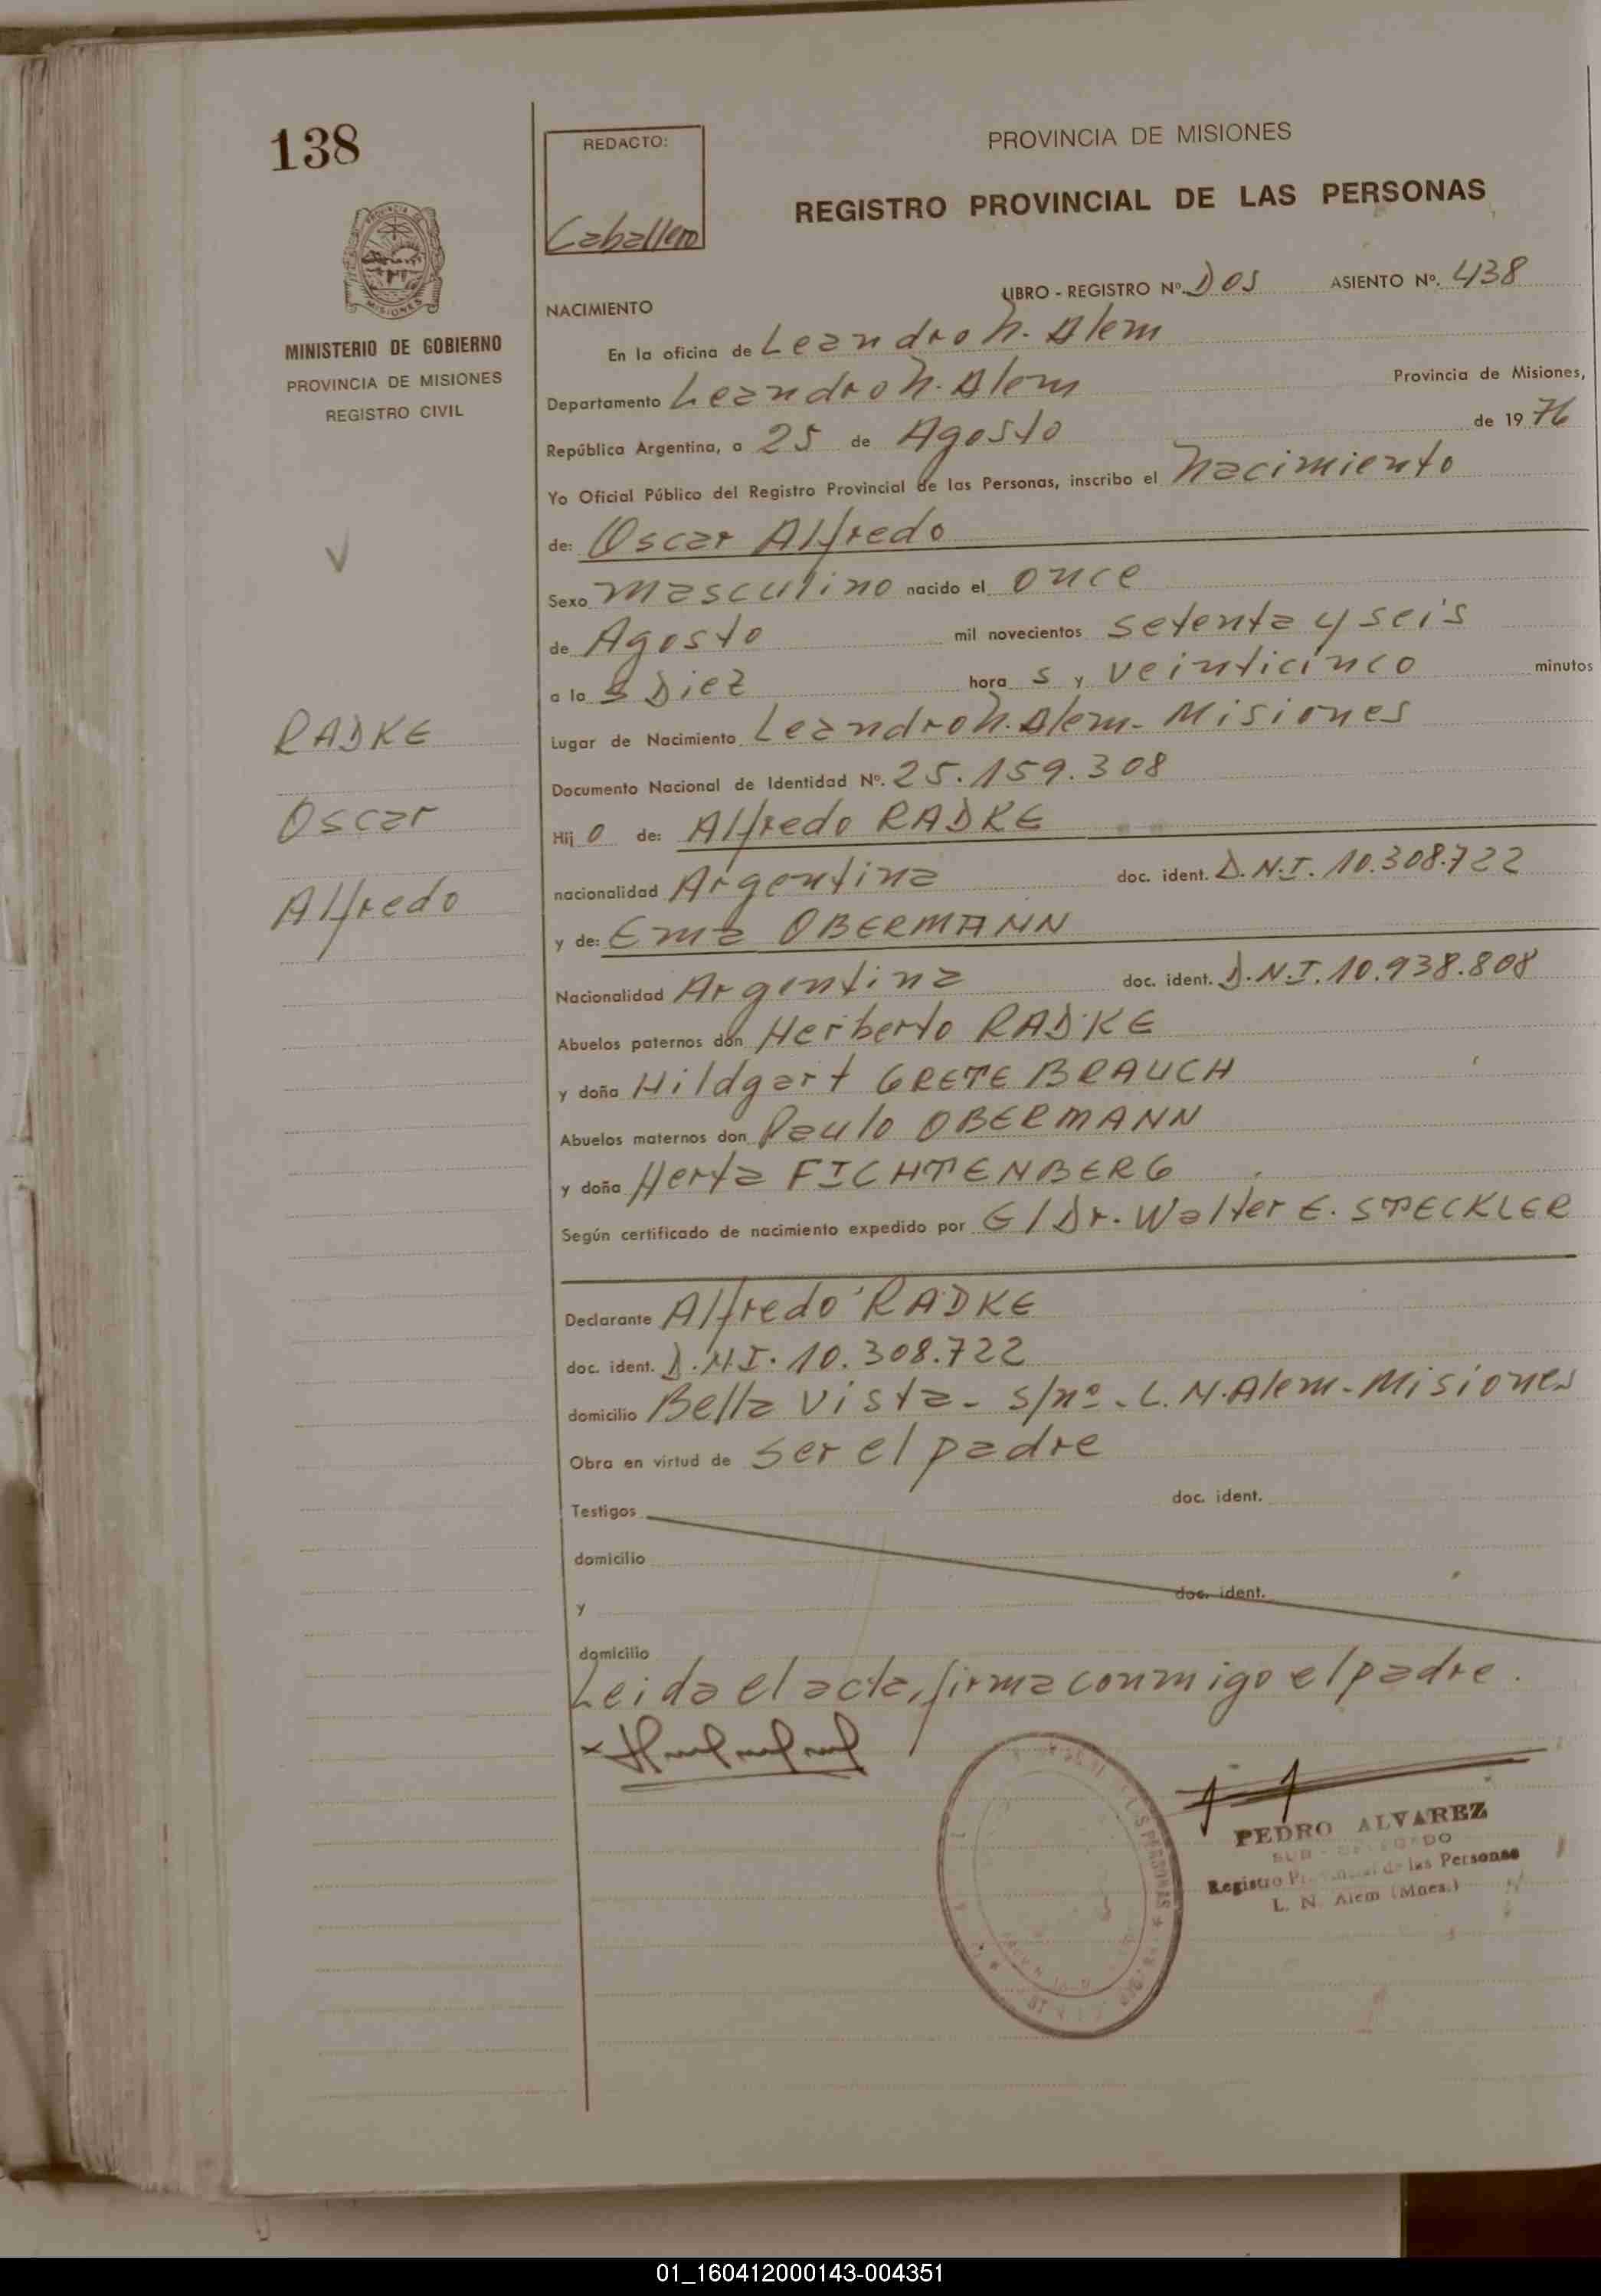 138
MINISTERIO DE GOBIERNO
PROVINCIA DE MISIONES
REGISTRO CIVIL
V
RADKE
Oscar
Alfredo
REDACTO:
Caballero
PROVINCIA DE MISIONES
REGISTRO PROVINCIAL DE LAS PERSONAS
NACIMIENTO
LIBRO - REGISTRO Nº. DOS ASIENTO Nº. 438
En la oficina de Leandro N. Alem
Departamento Leandro N. Alem Provincia de Misiones,
República Argentina, a 25 de Agosto de 19 76
Yo Oficial Público del Registro Provincial de las Personas, inscribo el Nacimiento
de: Oscar Alfredo
Sexo Masculino nacido el once
de Agosto mil novecientos setenta y seis
a la s Diez hora s y veinticinco minutos
Lugar de Nacimiento Leandro N. Alem - Misiones
Documento Nacional de Identidad Nº. 25.159.308
Hij o de: Alfredo RADKE
nacionalidad Argentina doc. ident. D.N.I. 10.308.722
y de: Ema OBERMANN
Nacionalidad Argentina doc. ident. D.N.I. 10.938.808
Abuelos paternos don Herberto RADKE
y doña Hildgart GRETE BRAUCH
Abuelos maternos don Paulo OBERMANN
y doña Herta FICHTENBERG
Según certificado de nacimiento expedido por El Dr. Walter E. STECKLER
Declarante Alfredo RADKE
doc. ident. D.N.I. 10.308.722
domicilio Bella Vista - s/nº - L.N. Alem - Misiones
Obra en virtud de ser el padre
Testigos doc. ident.
domicilio
y doc. ident.
domicilio
Leida el acta, firma conmigo el padre.
PEDRO ALVAREZ
SUB-DELEGADO
Registro Provincial de las Personas
L. N. Alem (Mnes.)
01_160412000143-004351